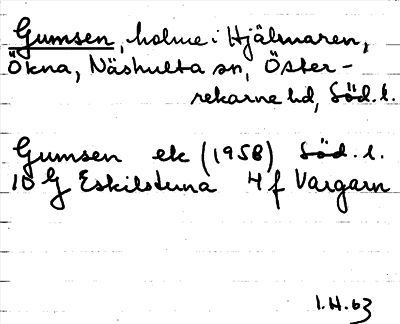 Gumsen, holme i Hjälmaren,
Ökna, Näshulta sn, Öster-
rekarne hd, Söd.l.
Gumsen ek (1958) Söd.l.
10 G Eskilstuna 4 f Vargarn
1.H.63